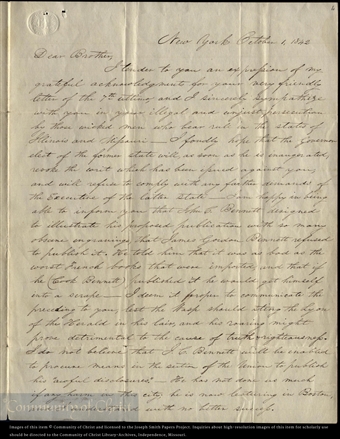 New York October 1, 1842
Dear Brother,
I tender to you an expression of my
grateful acknowledgments for your very friendly
letter of the 7th ultimo, and I sincerely sympathize
with you in your illegal and unjust persecution
by those wicked men who bear rule in the states of
Illinois and Missouri — I fondly hope that the Governor
elect of the former state will as soon as he is inaugurated,
revoke the writ which has been issued against you,
and will refuse to comply with any further demands of
the Executive of the latter State — I am happy in being
able to inform you that John C Bennett designed
to illustrate his proposed publication with so many
obscene engravings, that James Gordon Bennett refused
to publish it. He told him that it was as bad as the
worst French books that were imported, and that if
he (Bennett) published it he would get himself
into a scrape — I deem it proper to communicate the
preceding to you lest the Wasp should sting the Lyon
of the Herald in his lair, and his roaring might
prove detrimental to the cause of truth & righteousness.
I do not believe that J C Bennett will be enabled
to procure means in the eastern of the Union to publish
his "awful disclosures" — He has not done as much
if any harm in this city, he is now lecturing in Boston,
and with no better success.
Images of this item © Community of Christ and licensed to the Joseph Smith Papers Project. Inquiries about high-resolution images of this item for scholarly use
should be directed to the Community of Christ Library-Archives, Independence, Missouri.